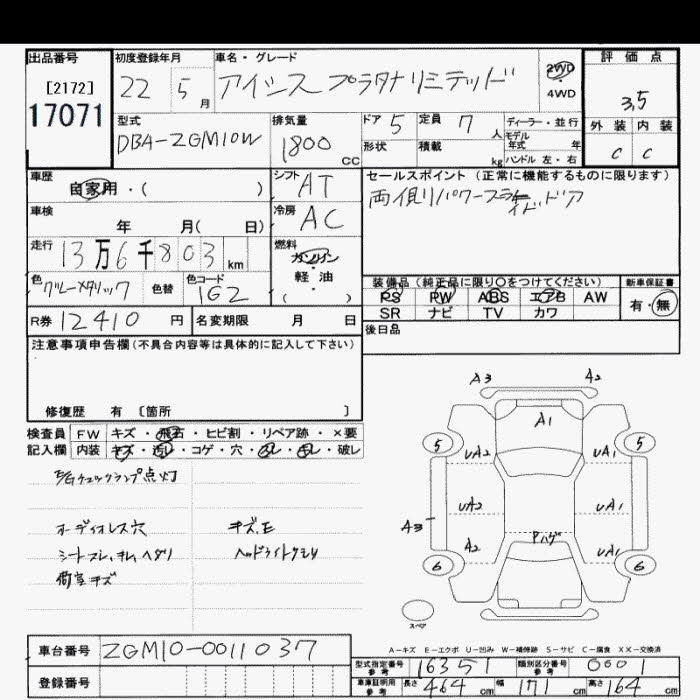 出品番号 初度登録年月 車名・グレード 評価点
[2172] 22 5月 アイシス プラタナリミテッド 2WD 4WD 3,5
17071
型式 排気量 ドア 5 定員 7人 ディーラー・並行 外装 内装
DBA-ZGM10W 1800cc 形状 積載 kg モデル年式 年 C C
ハンドル 左・右
車歴 シフト AT セールスポイント (正常に機能するものに限ります)
自家用・( )
車検 年 月( 日) 冷房 AC
走行 13万6千803km 燃料 ガソリン・軽油 ( )
色 グレーメタリック 色替 色コード 1G2
装備品 (純正品に限り○をつけてください) 新車保証書
PS PW ABS エアB AW 有・無
SR ナビ TV カワ
R券 12410円 名変期限 月 日 後日品
注意事項申告欄(不具合内容等は具体的に記入して下さい)
修復歴 有 [箇所 ]
検査員 FW キズ・飛石・ヒビ割・リペア跡・×要
記入欄 内装 キズ・汚レ・コゲ・穴・スレ・キレ・破レ
E/Gチェックランプ点灯
オーディオレス穴 キズ,E
シートスレ,キレ,ヘタリ ヘッドライトクモリ
荷室キズ
A3 A2
A1
5 5
UA2 UA1
A3 UA2 UA1
A2 Pハゲ UA1
6 6
スペア
A-キズ E-エクボ U-凹み W-補修跡 S-サビ C-腐食 XX-交換済
車台番号 ZGM10-0011037
型式指定番号 参考 16351 類別区分番号 参考 0001
登録番号 車庫証明用 参考 長さ 464cm 幅 171cm 高さ 164cm